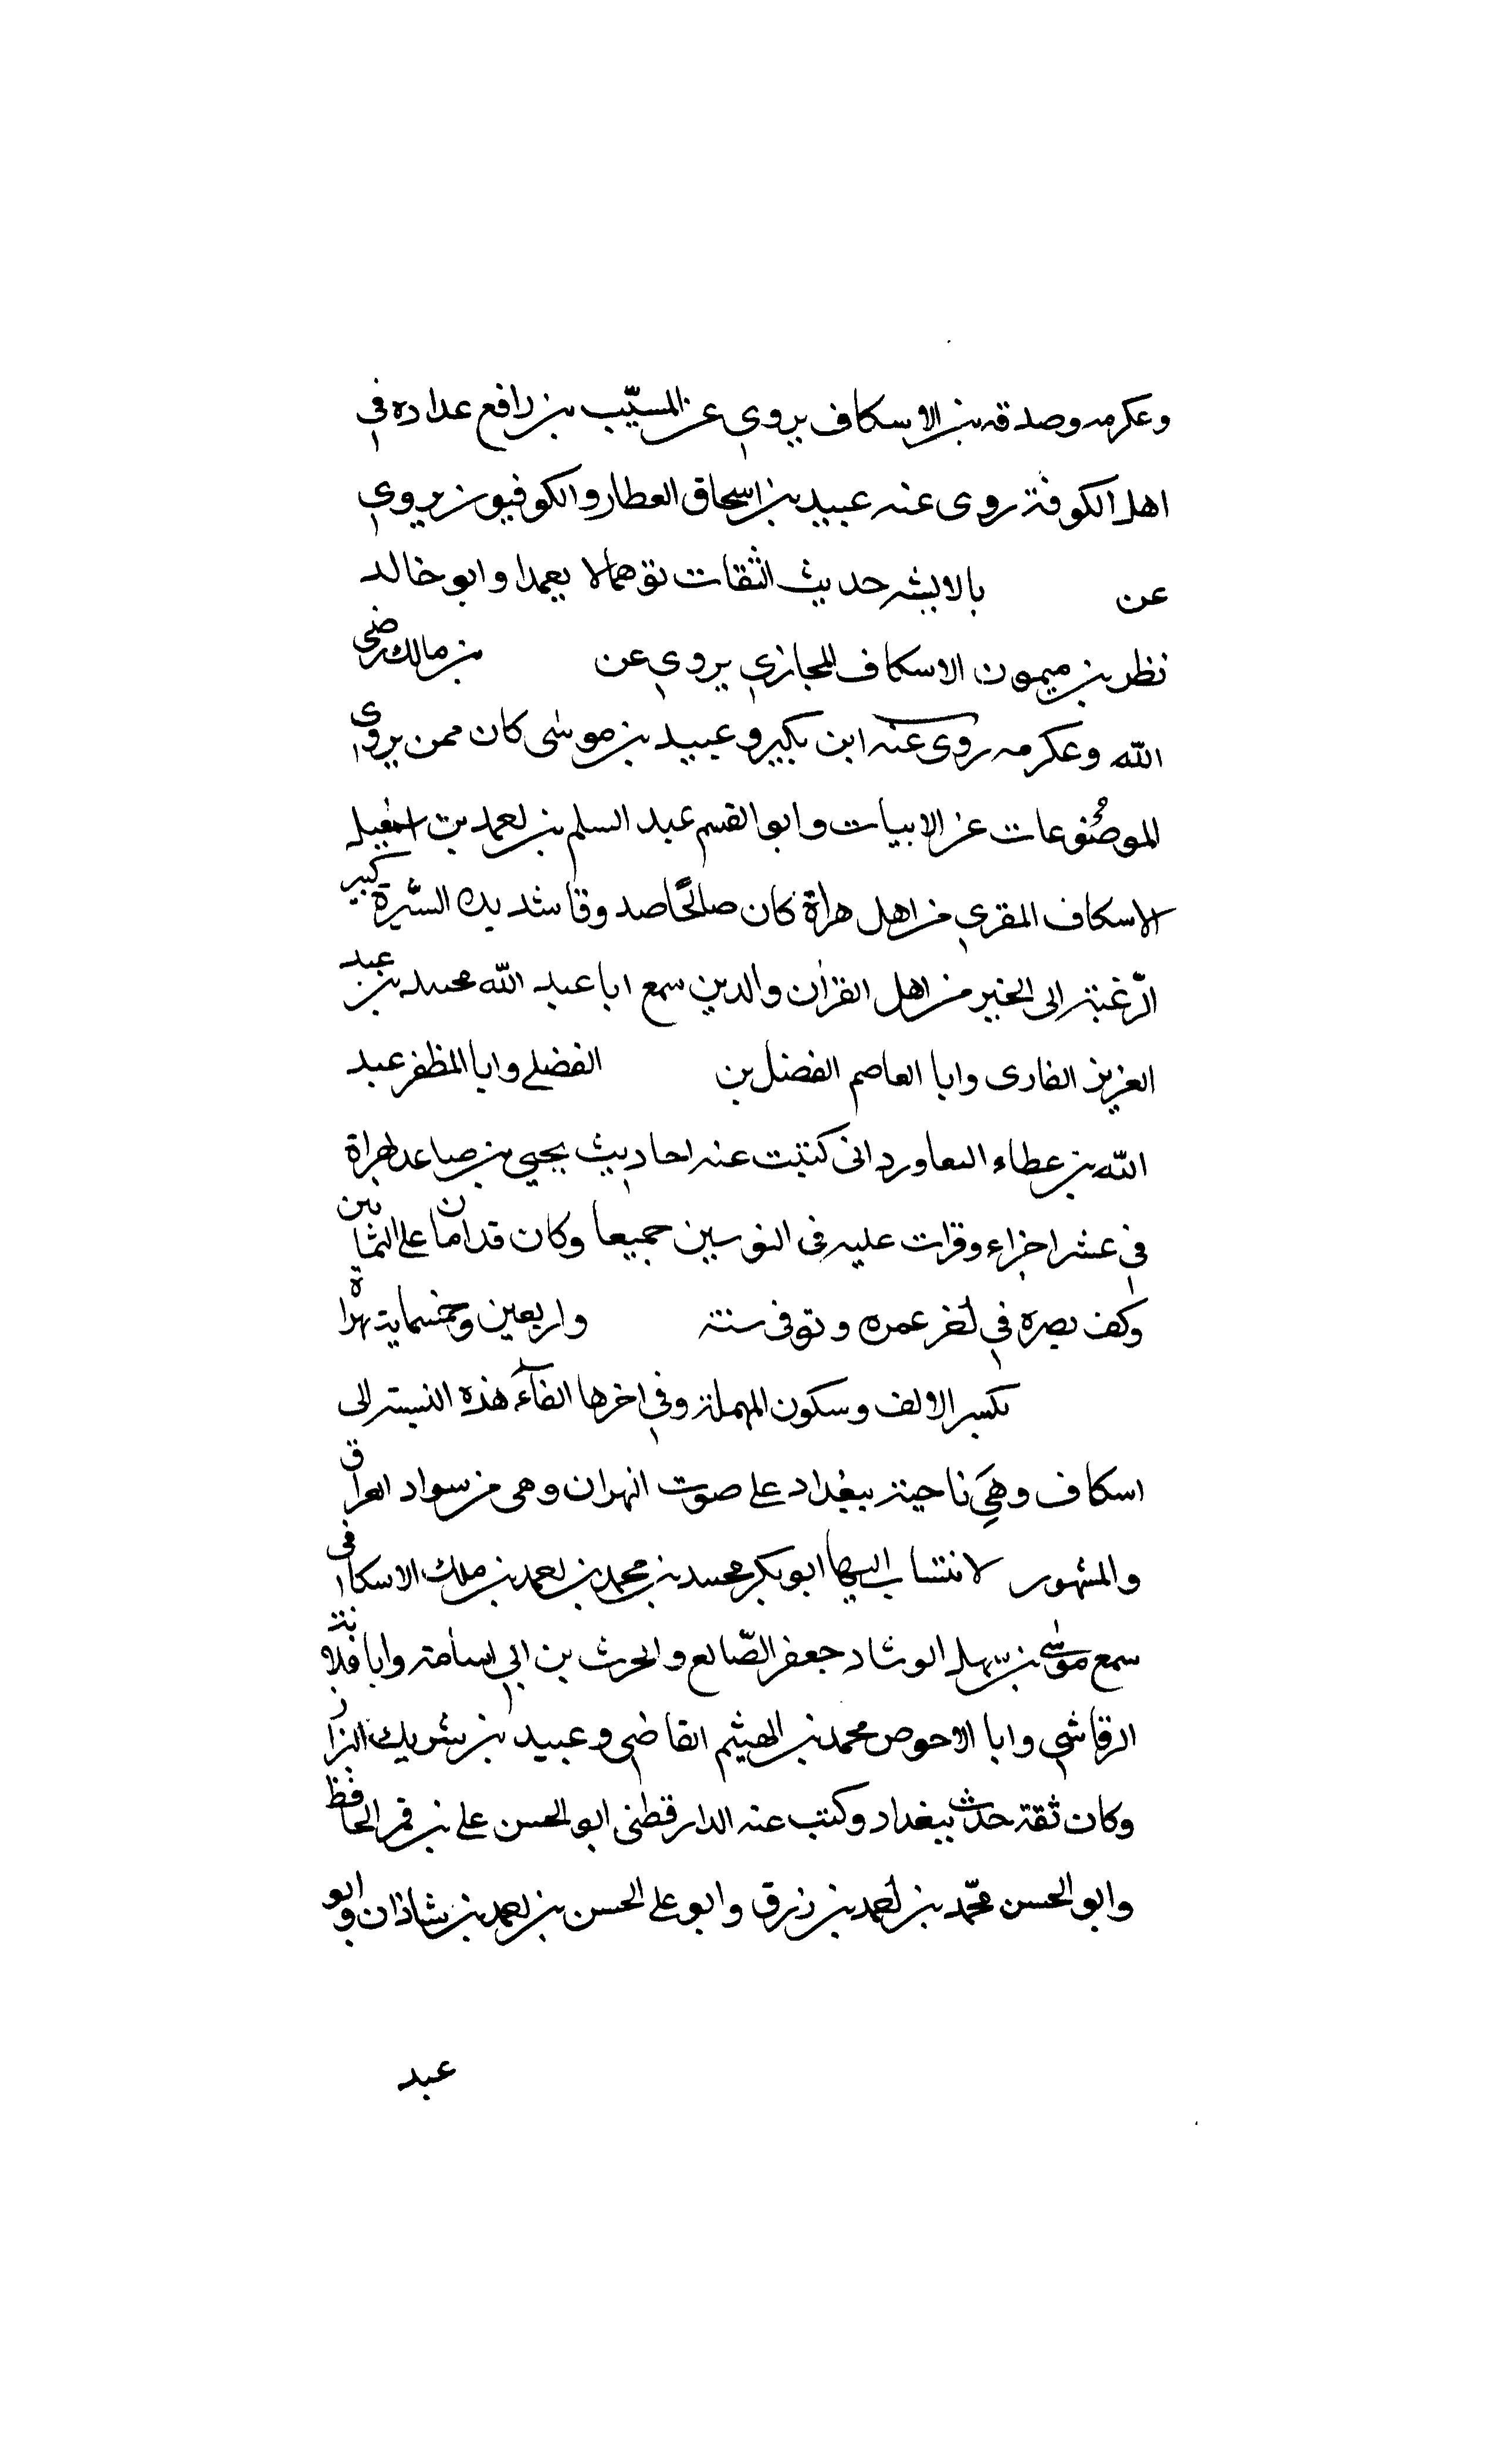 وعكرمه وصدقه بن الاسكاف يروي عن المسيّب بن رافع عداده في
اهل الكوفة روى عنه عبيد بن اسحاق العطار والكوفيون يروي
عن بالابشه حديث الثقات توهمالا يعمدا وابو خالد
نظر بن ميمون الاسكاف الحجازي يروي عن بن مالك رضى
الله وعكرمه روى عنه ابن بكير وعبيد بن موسى كان ممن يروي
الموضوعات عن الابيات وابو القسم عبد السلم بن احمد بن اسمعيل
الاسكاف المقري من اهل هراة كان صالحًا صدوقا شديد السّرة كبير
الرّغبة الى الخير من اهل القران والدين سمع ابا عبد الله محمد بن عبد
العزيز الفارى وابا العاصم الفضل بن الفضلي وابا المظفر عبد
الله بن عطاء البعاوردانى كتبت عنه احاديث يحيي بن صاعد لهراة
في عشر اجزاء وقرات عليه فى النوسين جميعا وكان قد امان على الثمانين
وكف بصره في اخر عمره وتوفى سنة واربعين وخمسماية بهراة
بكسر الالف وسكون المهملة وفي اخرها الفآء هذه النسبة الى
اسكاف وهي ناحية ببغداد على صوت النهران وهى من سواد العراق
والمشهور لانتساب اليها ابو بكر محمد بن محمد بن احمد بن ملك الاسكافى
سمع موسى بن سهل الوشاد جعفر الصّايع والحرث بن ابي اسامة وابا قلابة
الرقاشي وابا الاحوص محمد بن الهيثم القاضي وعبيد بن شريك البزار
وكان ثقة حدث ببغداد وكتب عنه الدارقطنى ابو الحسن على بن قمر الحافظ
وابو الحسن محمّد بن احمد بن زرق وابو على الحسن بن احمد بن شاذان وابو
عبد